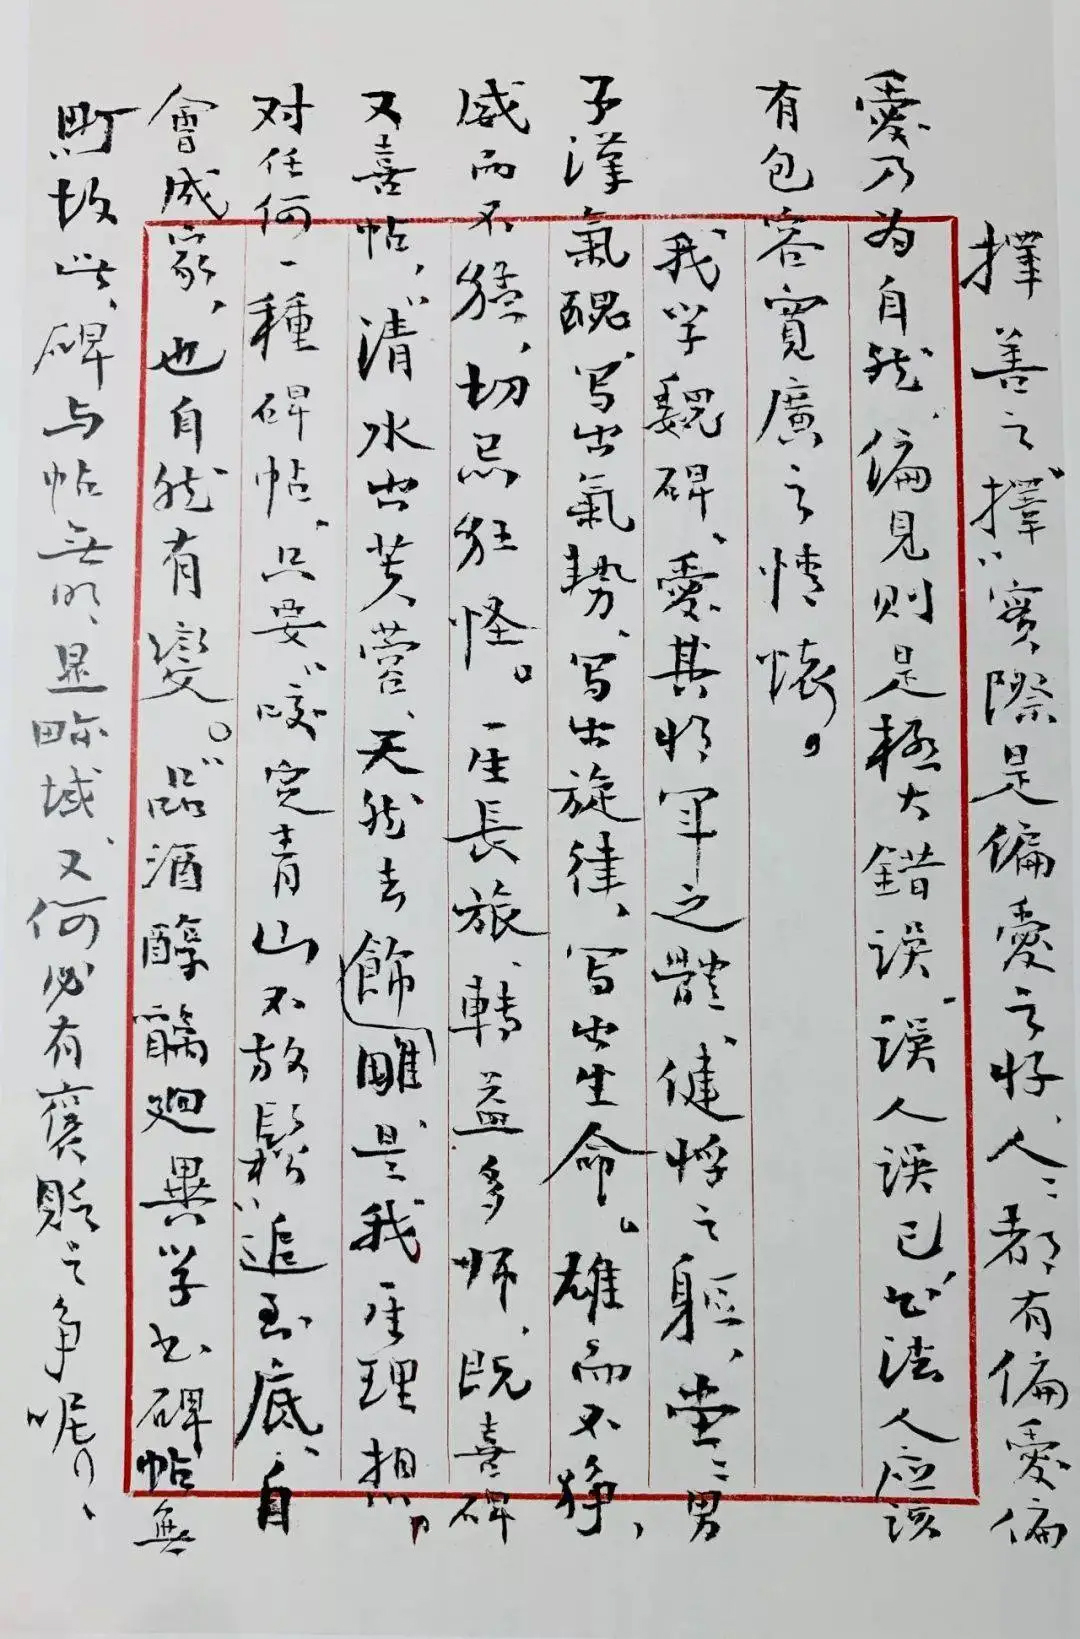 擇善之擇”實際是偏愛之好、人〻都有偏愛偏
愛乃为自然、偏見则是極大錯误、误人误己”书法人应该
有包容寬廣之情懷。
我学魏碑、愛其将军之體、健悍之軀、堂〻男
子漢氣魄、写出氣势、写出旋律、写出生命。雄而不狰，
威而不猛，切忌狂怪。一生長旅、轉益多师、既喜碑
又喜帖，“清水出芙蓉、天然去飾雕、是我一生理想。
对任何一種碑帖、只要“咬定青山不放鬆”追到底、自
會成家，也自然有变。“品酒醇醨迥異学书碑帖無
故此、碑与帖无明显畛域、又何必有褒貶之争呢？